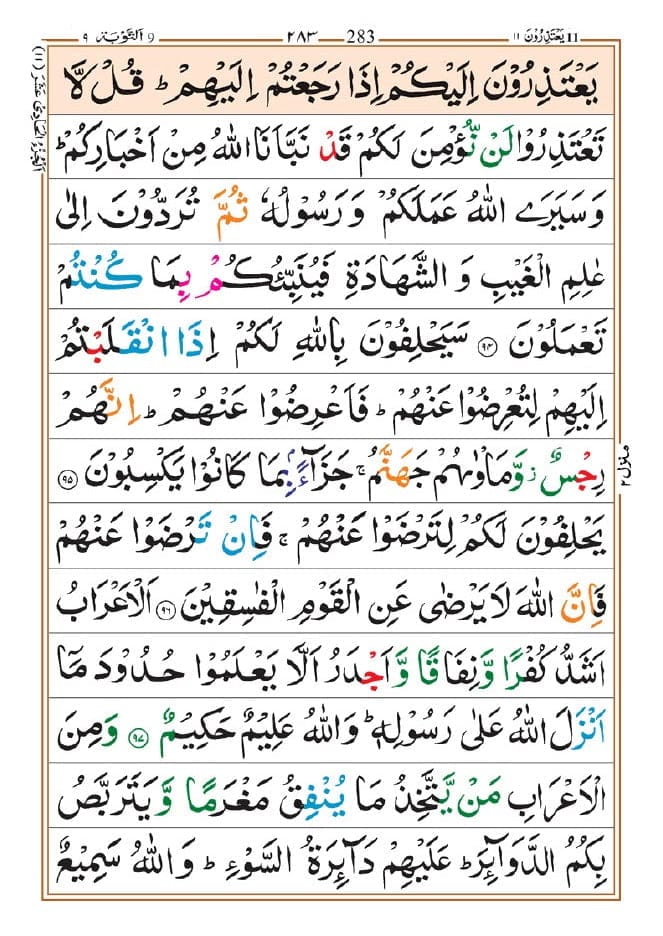 11 يَعْتَذِرُوْنَ ١١
283 ٢٨٣
9 اَلتَّوْبَة ٩
اَلْجُزْءُ الْحَادِیْ عَشَرَ (١١)
يَعْتَذِرُوْنَ اِلَيْكُمْ اِذَا رَجَعْتُمْ اِلَيْهِمْ ؕ قُلْ لَّا
تَعْتَذِرُوْا لَنْ نُّؤْمِنَ لَكُمْ قَدْ نَبَّاَنَا اللّٰهُ مِنْ اَخْبَارِكُمْ ؕ
وَ سَيَرَى اللّٰهُ عَمَلَكُمْ وَ رَسُوْلُهٗ ثُمَّ تُرَدُّوْنَ اِلٰى
عٰلِمِ الْغَيْبِ وَ الشَّهَادَةِ فَيُنَبِّئُكُمْ بِمَا كُنْتُمْ
تَعْمَلُوْنَ ۝٩٤ سَيَحْلِفُوْنَ بِاللّٰهِ لَكُمْ اِذَا انْقَلَبْتُمْ
اِلَيْهِمْ لِتُعْرِضُوْا عَنْهُمْ ؕ فَاَعْرِضُوْا عَنْهُمْ ؕ اِنَّهُمْ
رِجْسٌ ز وَّمَاْوٰىهُمْ جَهَنَّمُ ۚ جَزَآءًۢ بِمَا كَانُوْا يَكْسِبُوْنَ ۝٩٥
يَحْلِفُوْنَ لَكُمْ لِتَرْضَوْا عَنْهُمْ ۚ فَاِنْ تَرْضَوْا عَنْهُمْ
فَاِنَّ اللّٰهَ لَا يَرْضٰى عَنِ الْقَوْمِ الْفٰسِقِيْنَ ۝٩٦ اَلْاَعْرَابُ
اَشَدُّ كُفْرًا وَّ نِفَاقًا وَّ اَجْدَرُ اَلَّا يَعْلَمُوْا حُدُوْدَ مَاۤ
اَنْزَلَ اللّٰهُ عَلٰى رَسُوْلِهٖ ؕ وَاللّٰهُ عَلِيْمٌ حَكِيْمٌ ۝٩٧ وَ مِنَ
الْاَعْرَابِ مَنْ يَّتَّخِذُ مَا يُنْفِقُ مَغْرَمًا وَّ يَتَرَبَّصُ
بِكُمُ الدَّوَآئِرَ ؕ عَلَيْهِمْ دَآئِرَةُ السَّوْءِ ؕ وَ اللّٰهُ سَمِيْعٌ
منزل ٢